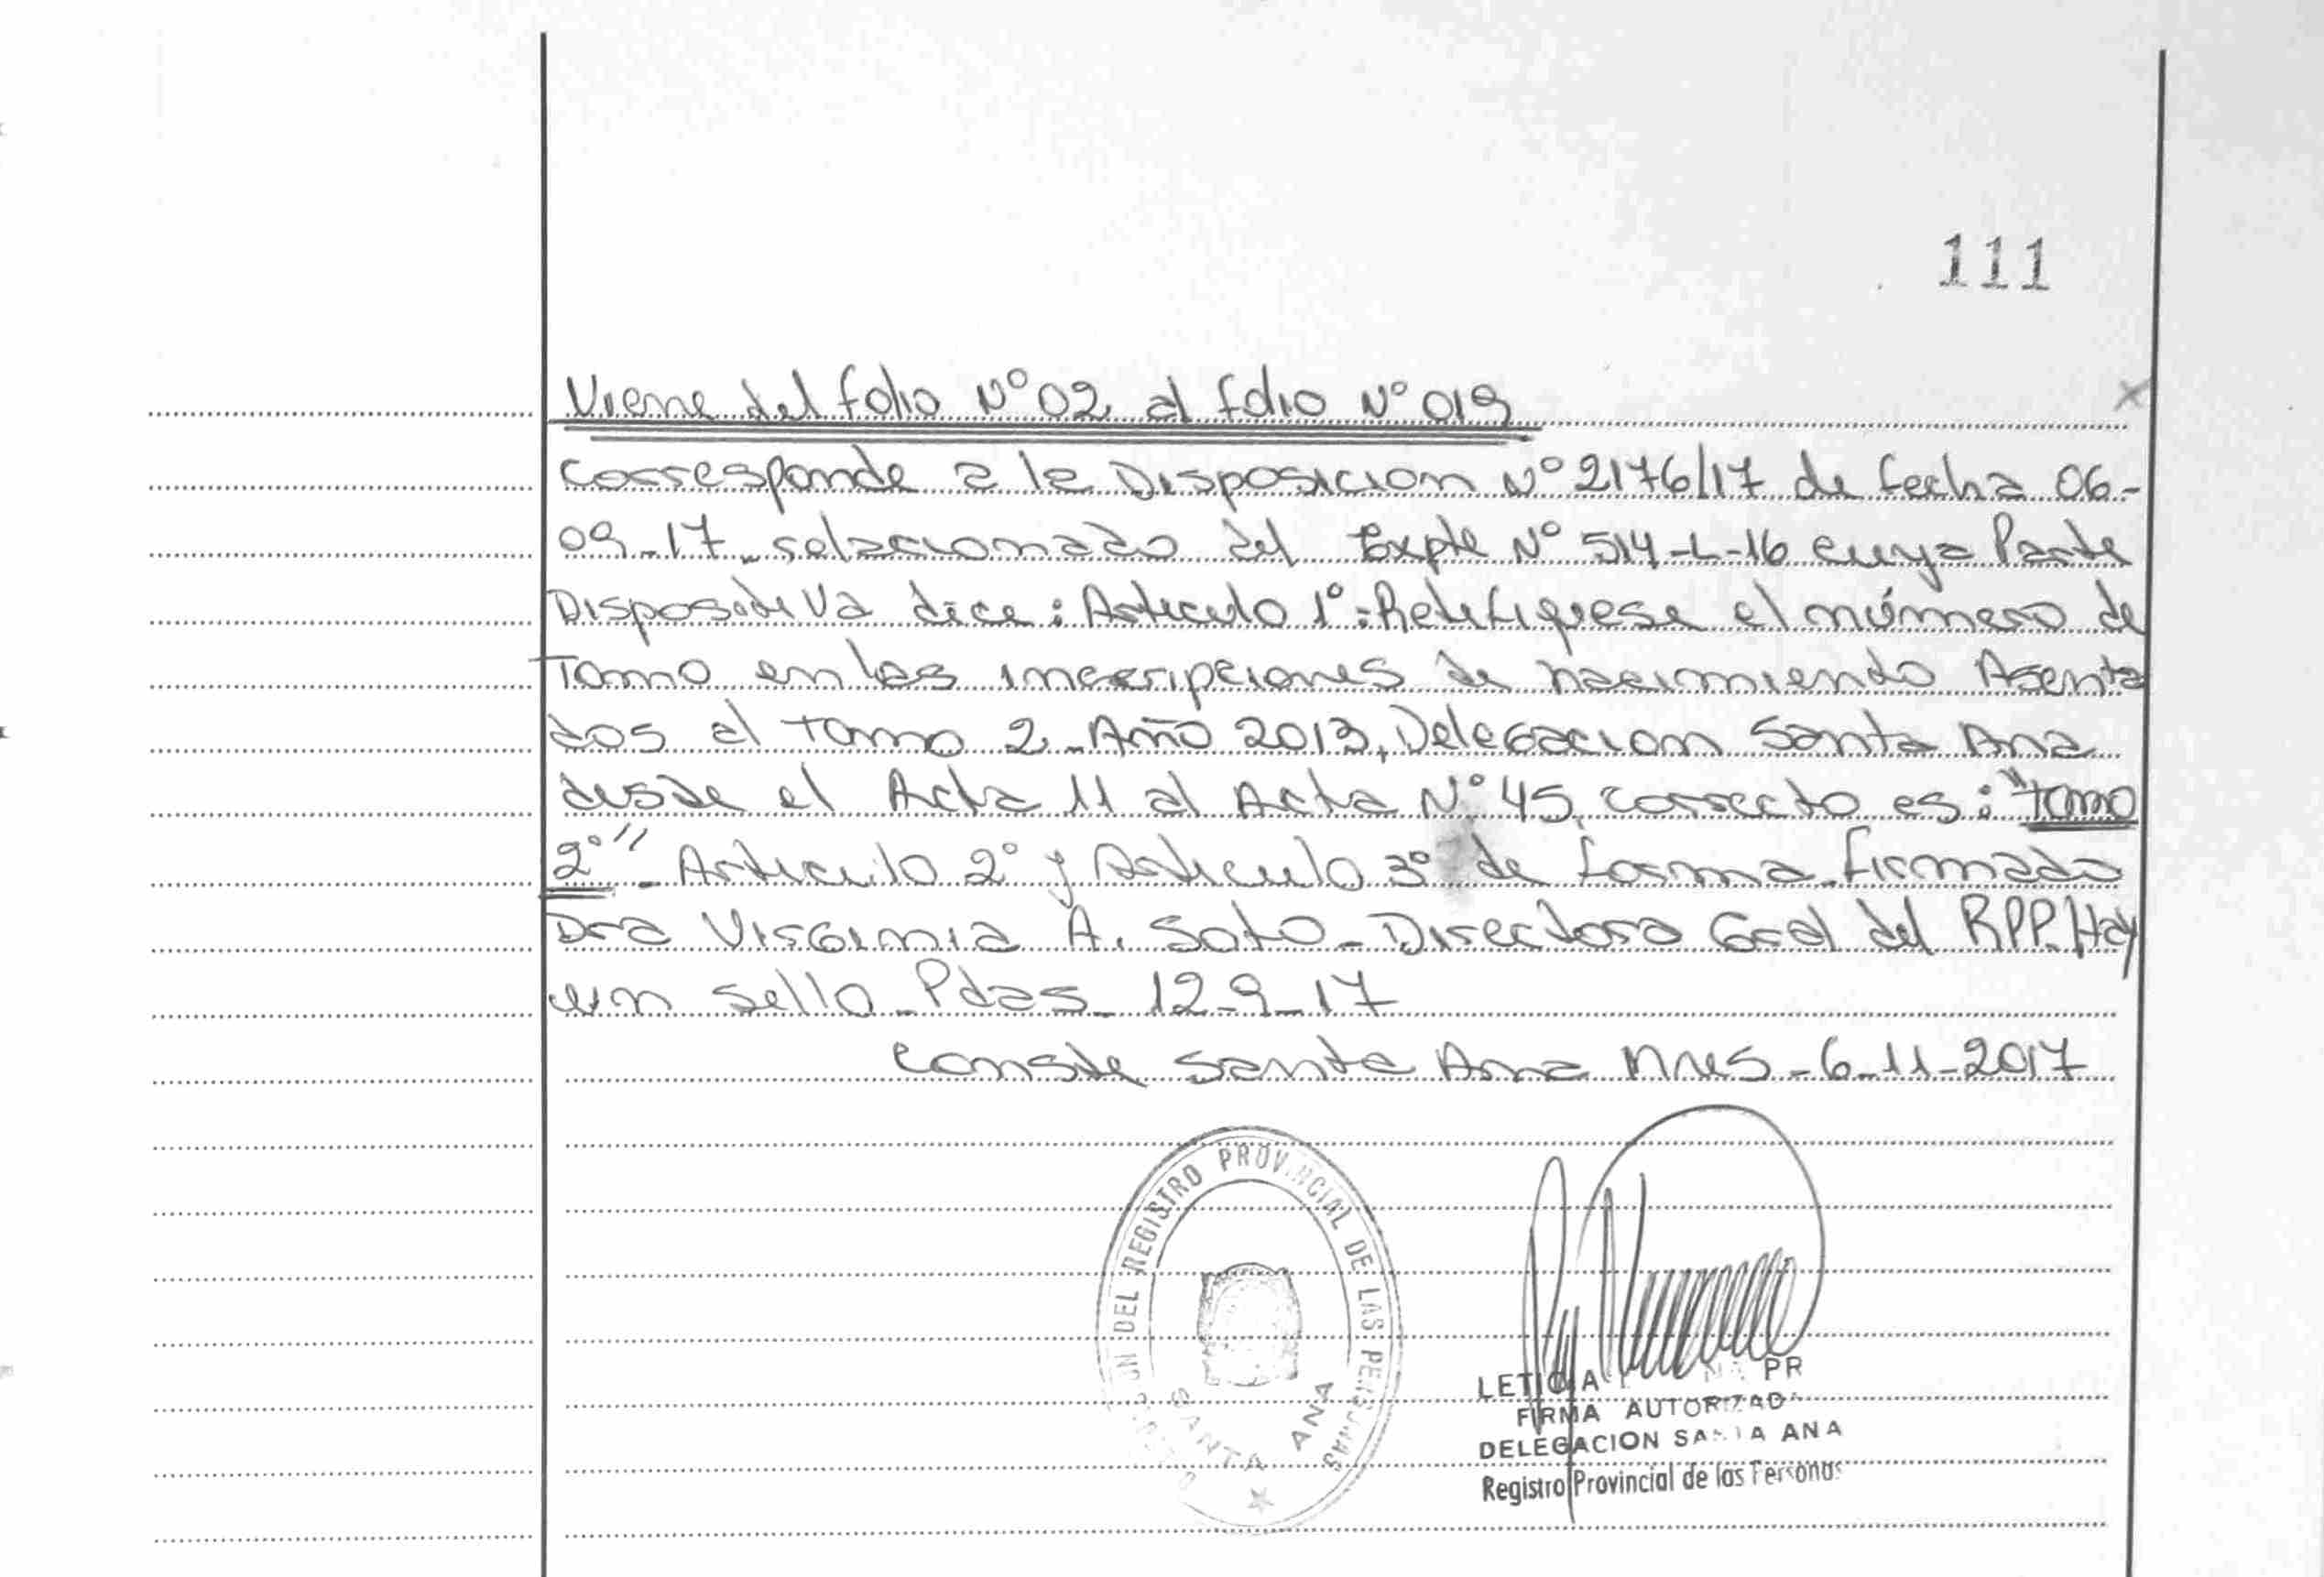 111
Viene del folio N° 02 al folio N° 019
Corresponde a la Disposicion N° 2176/17 de fecha 06-
09-17 relacionado del Expte N° 514-L-16 cuya Parte
Dispositiva dice: Articulo 1°: Retifiquese el número de
Tomo en las inscripciones de nacimiento Asenta
dos al tomo 2 - Año 2013, Delegacion Santa Ana
desde el Acta 11 al Acta N° 45, correcto es: "tomo
2°" - Articulo 2° y Articulo 3° de forma - firmado
Dra Virginia A. Soto - Directora Gral del RPP. Hay
un sello - Pdas - 12-9-17
Conste Santa Ana Mnes - 6-11-2017
DEL REGISTRO PROVINCIAL DE LAS PERSONAS
SANTA ANA
LETICIA PR
FIRMA AUTORIZAD
DELEGACION SANTA ANA
Registro Provincial de las Personas